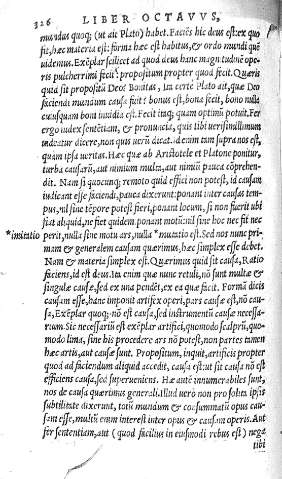 326 LIBER OCTAVVS,
mundus quoq; (ut ait Plato) habet. Faciēs hic deus est: ex quo
fit, hæc materia est: forma hæc est habitus, & ordo mundi quē
uidemus. Exēplar scilicet ad quod deus hanc magnitudinē ope
ris pulcherrimi fecit: propositum propter quod fecit. Quæris
quid sit propositū Deo? Bonitas. Ita certè Plato ait, quæ Deo
faciendi mundum causa fuit? bonus est, bona fecit, bono nulla
cuiusquam boni inuidia est. Fecit itaq; quàm optimū potuit. Fer
ergo iudex sentētiam, & pronuncia, quis tibi uerisimillimum
uideatur dicere, non quis uerū dicat. id enim tam supra nos est,
quàm ipsa ueritas. Hæc quæ ab Aristotele et Platone ponitur,
turba causarū, aut nimium multa, aut nimiū pauca cōprehen-
dit. Nam si quocunq; remoto quid effici non potest, id causam
iudicant esse faciendi, pauca dixerunt: ponant inter causas tem-
pus, nil sine tēpore potest fieri, ponant locum, si non fuerit ubi
fiat aliquid, ne fiet quidem. ponant motū: nil sine hoc nec fit nec
*imitatio perit, nulla sine motu ars, nulla *mutatio est. Sed nos nunc pri-
mam & generalem causam quærimus, hæc simplex esse debet.
Nam & materia simplex est. Quærimus quid sit causa, Ratio
faciens, id est deus. Ita enim quæ nunc retuli, nō sunt multæ &
singulæ causæ, sed ex una pendēt, ex ea quæ facit. Formā dicis
causam esse, hanc imposit artifex operi, pars causæ est, nō cau-
sa, Exēplar quoq; nō est causa, sed instrumentū causæ necessa-
rium. Sic necessariū est exēplar artifici, quomodo scalprū, quo-
modo lima, sine his procedere ars nō potest, non partes tamen
hæc artis, aut causæ sunt. Propositum, inquit, artificis propter
quod ad faciendum aliquid accedit, causa est: ut sit causa nō est
efficiens causa, sed superueniens. Hæ autē innumerabiles sunt,
nos de causa quærimus generali. Illud uerò non pro solita ipsis
subtilitate dixerunt, totū mundum & cōsummatū opus cau-
sam esse, multū enim interest inter opus & causam operis. Aut
fer sententiam, aut (quod facilius in eiusmodi rebus est) nega
tibi